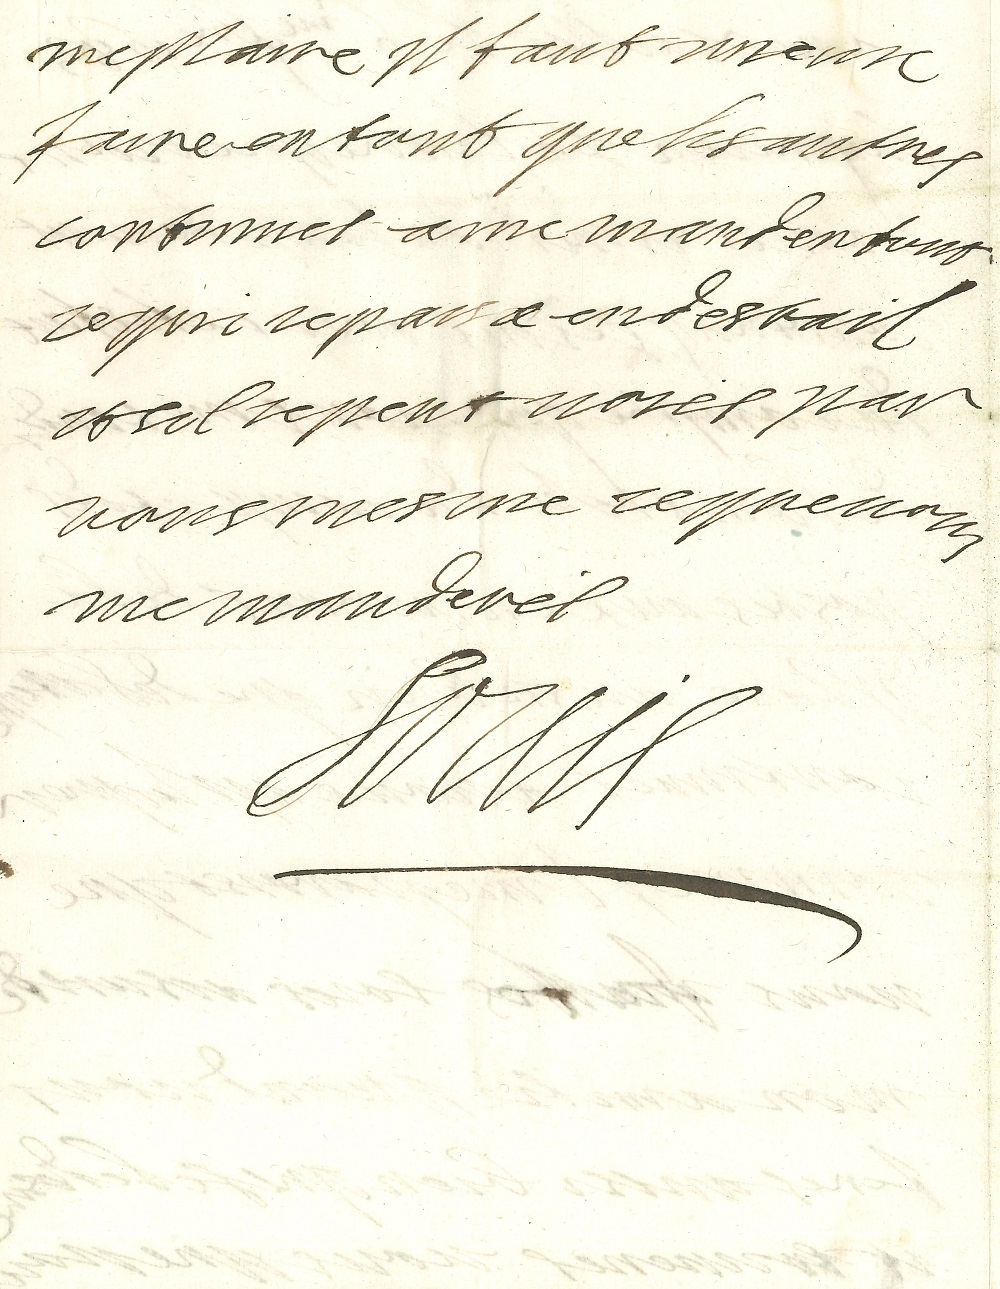 me plaire yl faut mieux
faire en tout que les autres
continues a me mander tout
ce qui ce passe en destail
et sil ce peut voies par
vous mesme ce que vous
me manderes
Louis